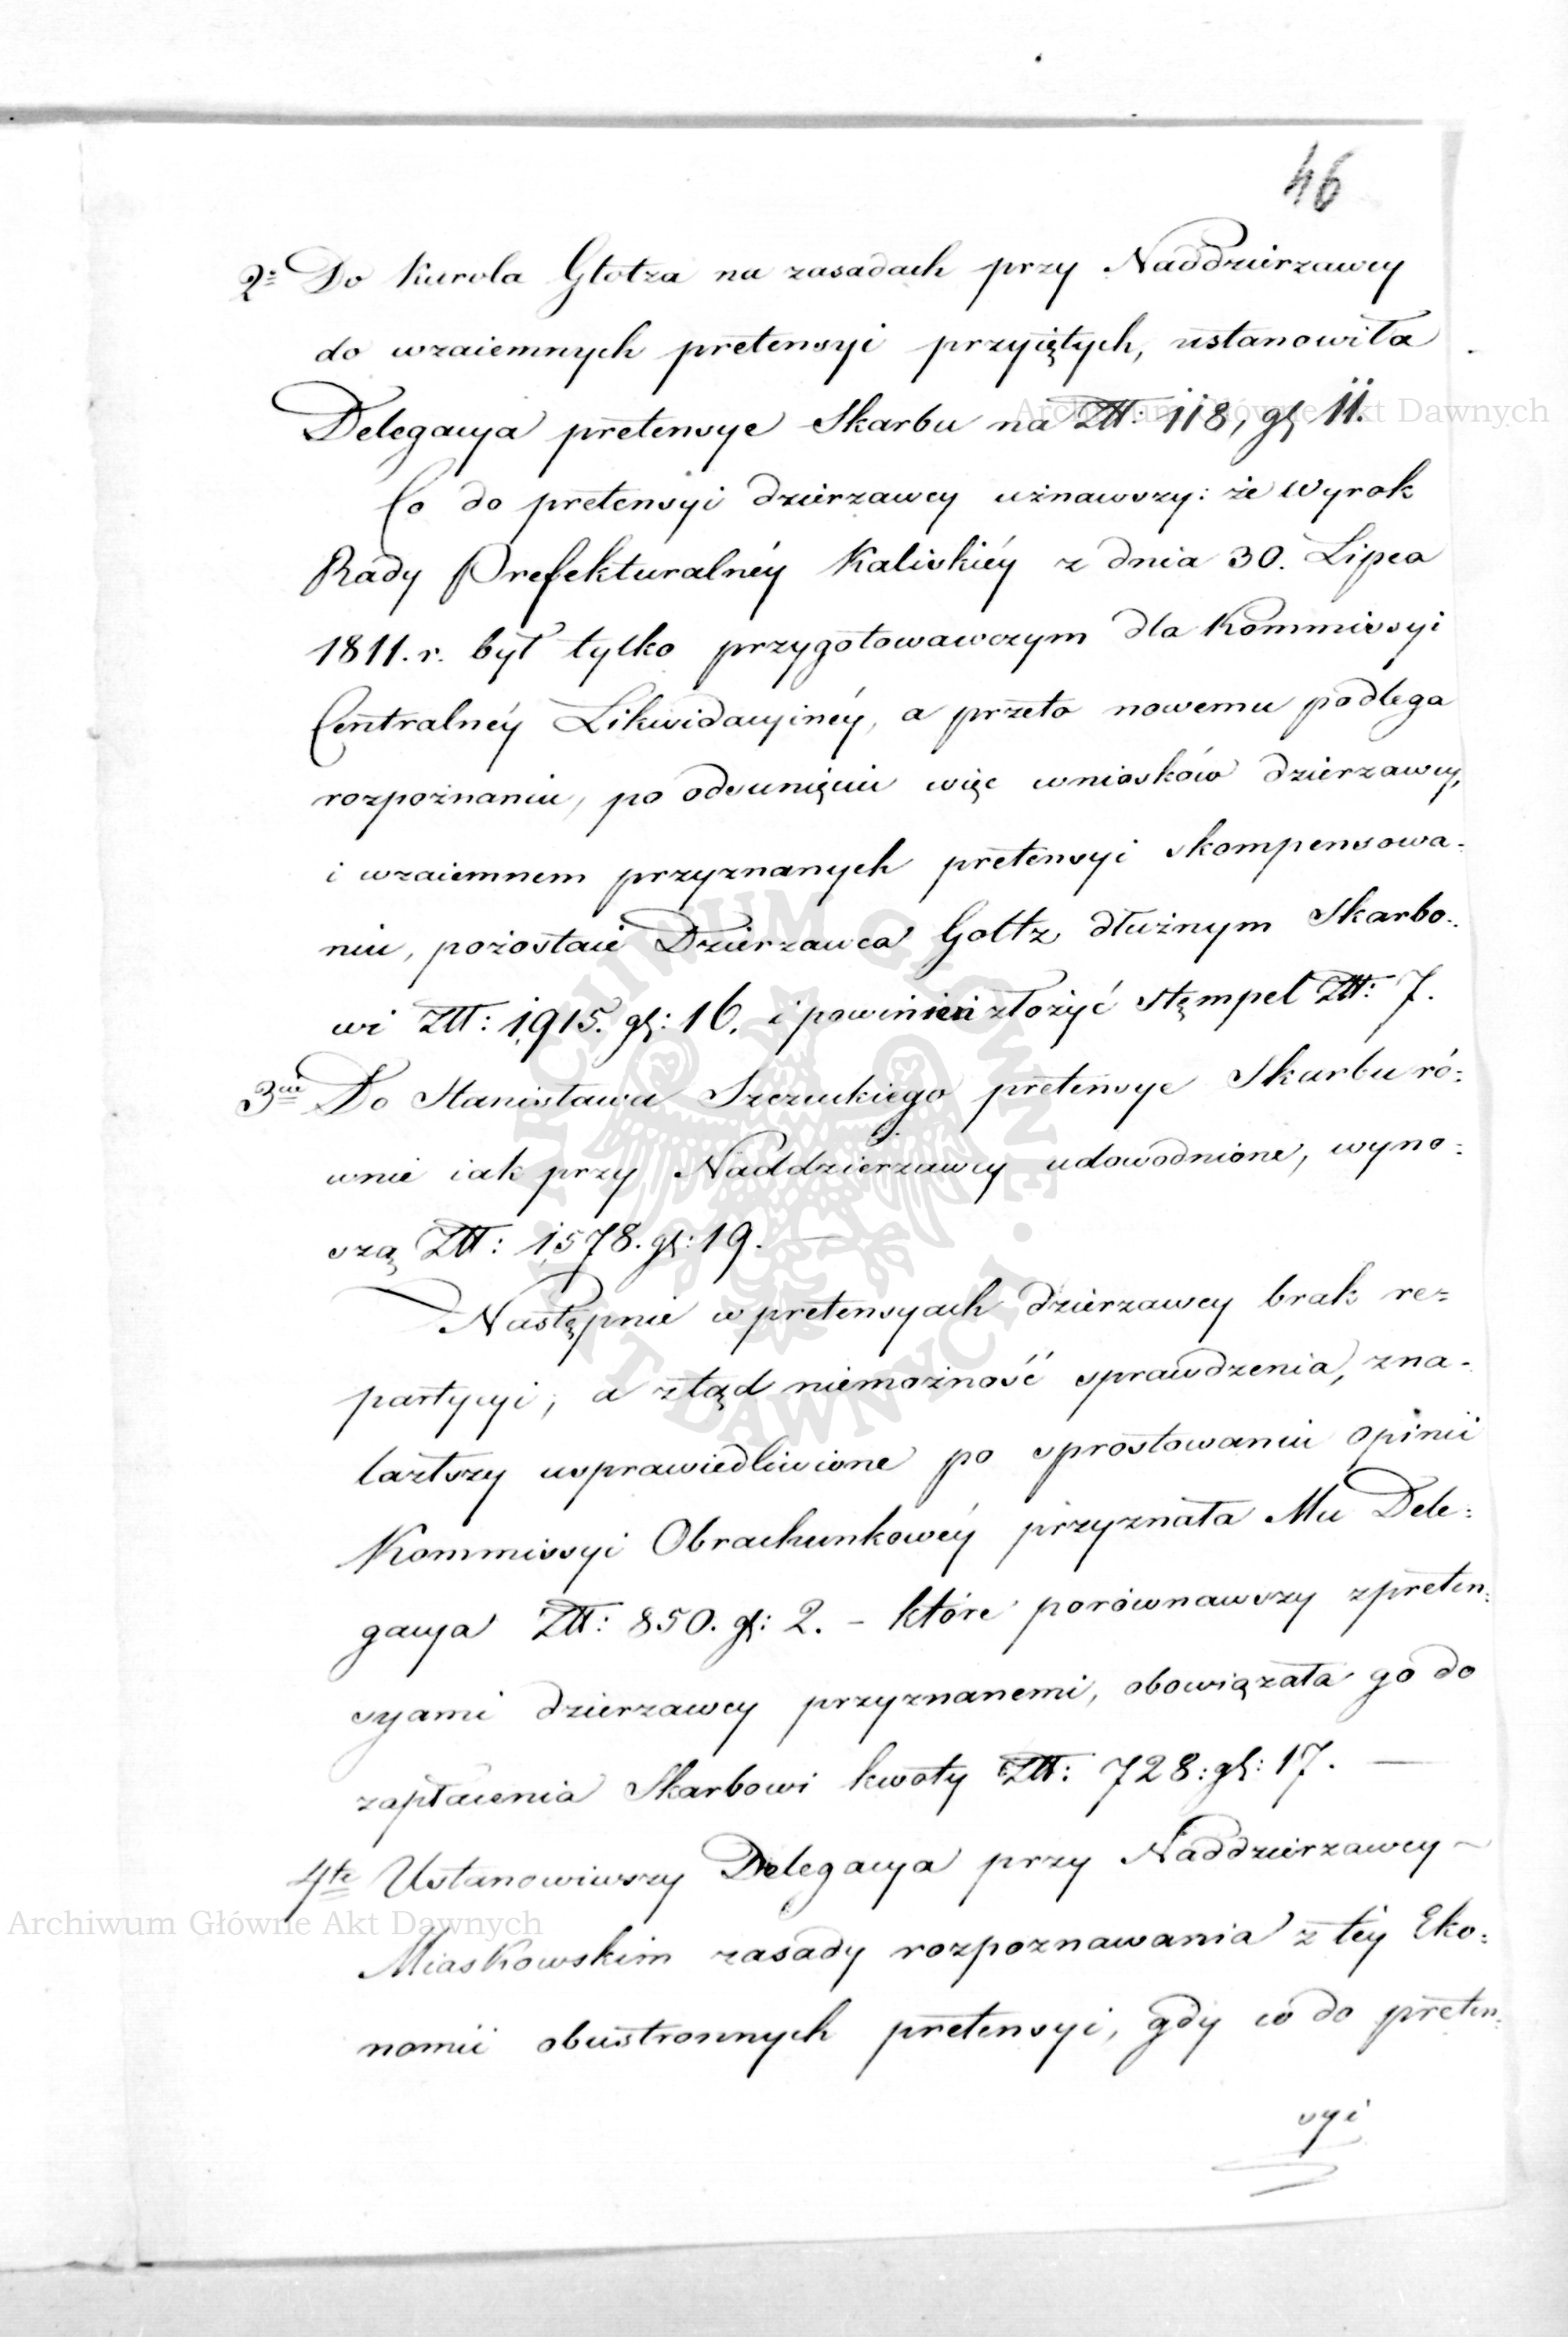 46
2º Do Karola Głotza na zasadach przy Naddzierzawcy
do wzaiemnych pretensyi przyiętych, ustanowiła
Delegacya pretensye Skarbu na Złł: 118, gl 11.
Co do pretensyi dzierzawcy uznawszy: że Wyrok
Rady Prefekturalnéy Kaliskiéy z dnia 30. Lipca
1811. r. był tylko przygotowawczym dla Kommissyi
Centralnéy Likwidacyinéy, a przeto nowemu podlega
rozpoznaniu, po odsunięciu więc wniosków dzierzawcy,
i wzaiemnem przyznanych pretensyi skompensowa-
niu, pozostaie Dzierzawca Goltz dłużnym Skarbo-
wi Złł: 1,915. gl: 16. i powinien złożyć stęmpel Złł: 7.
3cie Do Stanisława Szczuckiego pretensye Skarbu ró-
wnie iak przy Naddzierzawcy udowodnione, wyno-
szą Złł: 1,578. gl: 19. —
Następnie w pretensyach dzierzawcy brak re-
partycyi, a ztąd niemożność sprawdzenia, zna-
lazłszy usprawiedliwione po sprostowaniu opinii
Kommissyi Obrachunkowéy przyznała Mu Dele-
gacya Złł: 850. gl: 2. – które porównawszy z preten-
syami dzierzawcy przyznanemi, obowiązała go do
zapłacenia Skarbowi kwoty Złł: 728: gl: 17. —
4te Ustanowiwszy Delegacya przy Naddzierzawcy
Miaskowskim zasady rozpoznawania z téy Eko-
nomii obustronnych pretensyi, gdy co do preten-
syi
Archiwum Główne Akt Dawnych
Archiwum Główne Akt Dawnych
ARCHIWUM GŁÓWNE AKT DAWNYCH